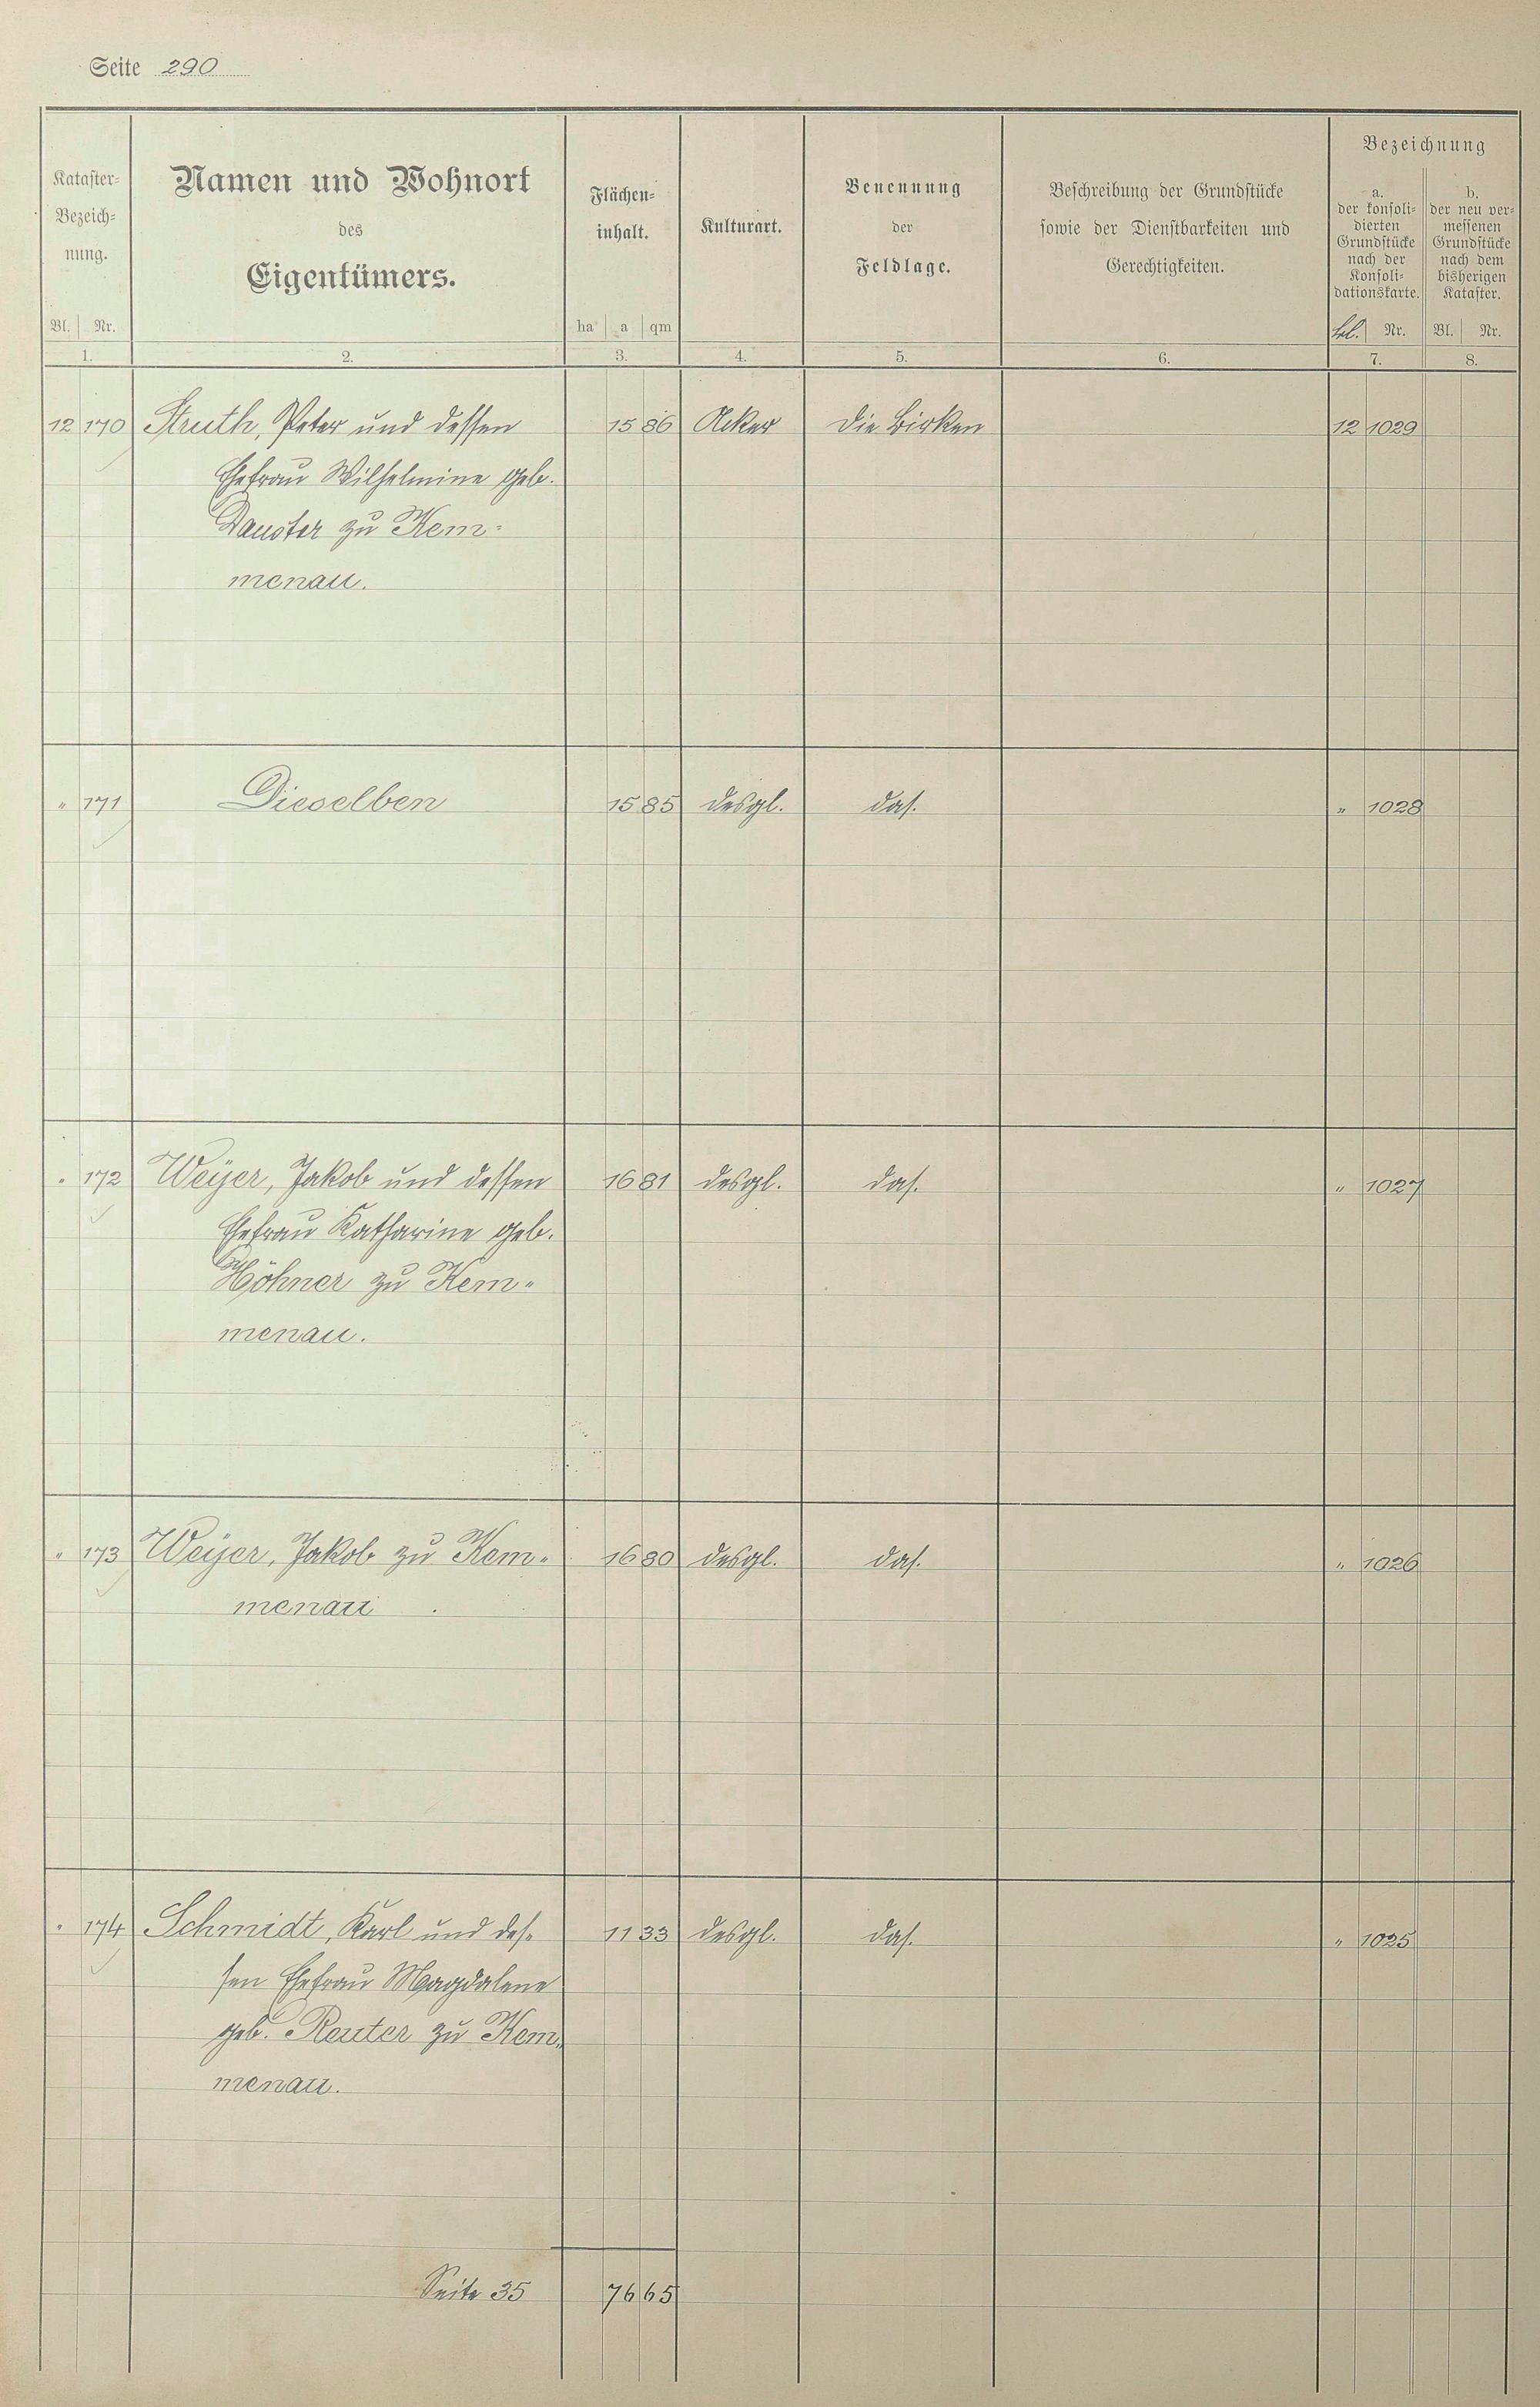 Seite 290
Kataster-
Bezeich-
nung.
Bl. Nr.
Namen und Wohnort
des
Eigentümers.
Flächen-
inhalt.
ha a qm
Kulturart.
Benennung
der
Feldlage.
Beschreibung der Grundstücke
sowie der Dienstbarkeiten und
Gerechtigkeiten.
Bezeichnung
a.
der konsoli-
dierten
Grundstücke
nach der
Konsoli-
dationskarte.
Bl. Nr.
b.
der neu ver-
messenen
Grundstücke
nach dem
bisherigen
Kataster.
Bl. Nr.
1. 2. 3. 4. 5. 6. 7. 8.
12 170 Struth, Peter und dessen 15 86 Acker Die Birken 12 1029
Ehefrau Wilhelmine geb.
Dauster zu Kem-
menau.
" 171 Dieselben 15 85 desgl. das. " 1028
" 172 Weyer, Jakob und dessen 16 81 desgl. das. " 1027
Ehefrau Katharine geb.
Höhner zu Kem-
menau.
" 173 Weyer, Jakob zu Kem- 16 80 desgl. das. " 1026
menau.
" 174 Schmidt, Karl und des- 11 33 desgl. das. " 1025
sen Ehefrau Magdalene
geb. Reuter zu Kem-
menau.
Seite 35 76 65